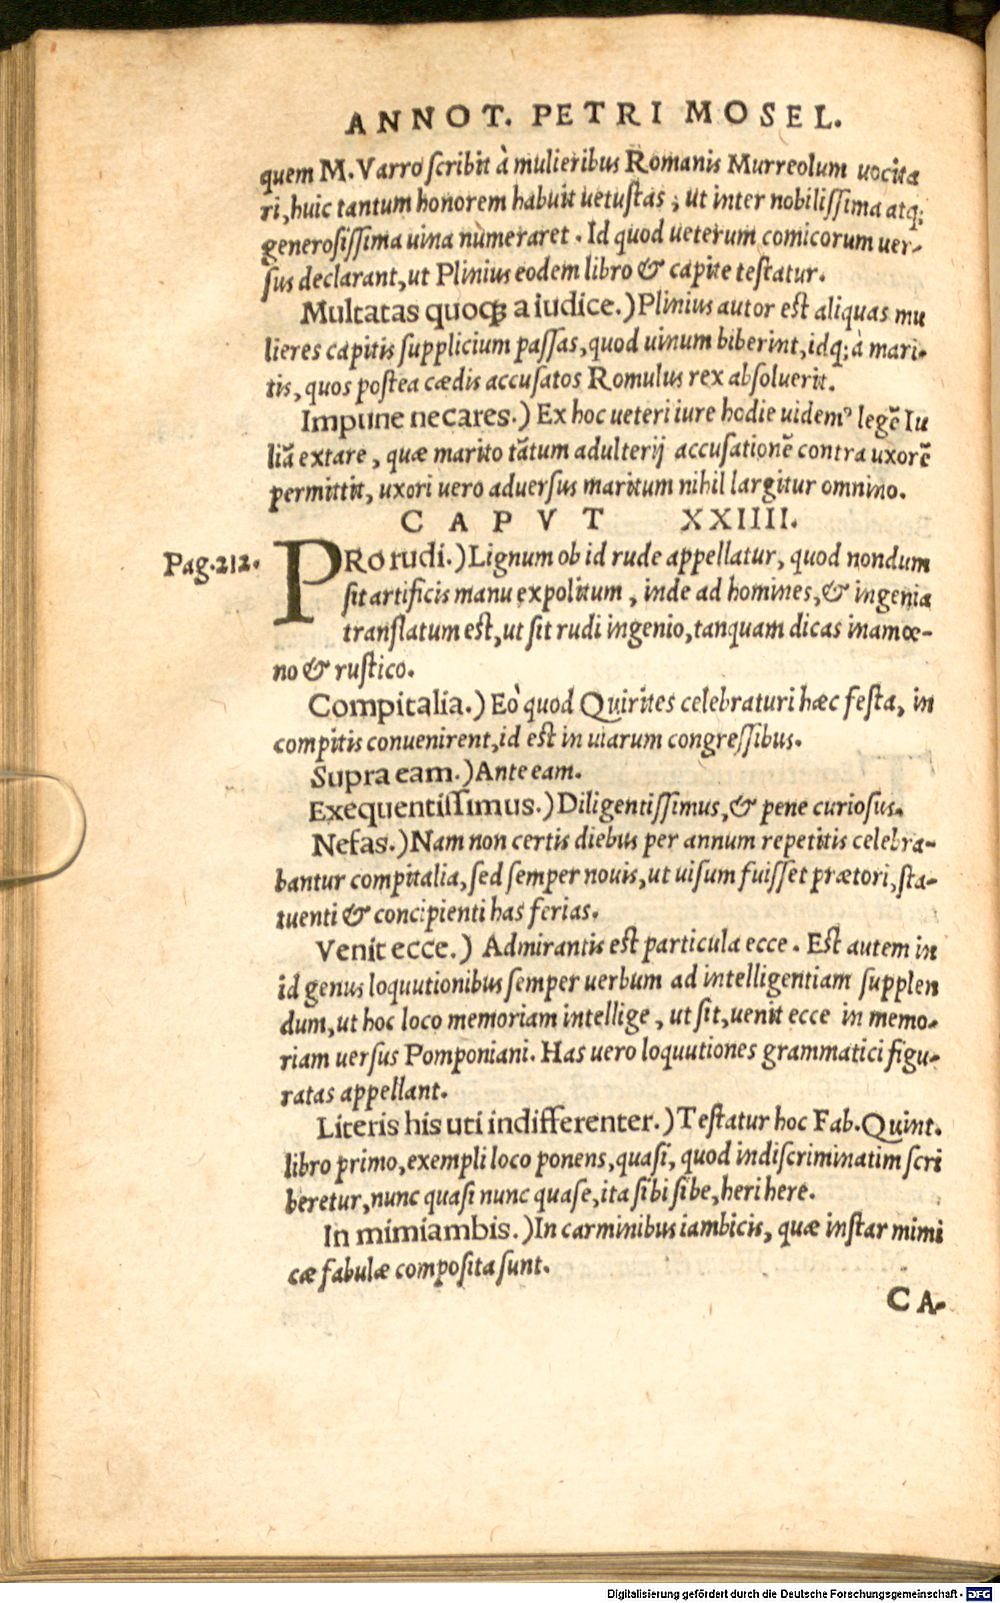 ANNOT. PETRI MOSEL.
quem M. Varro ſcribit à mulieribus Romanis Murreolum uocita
ri, huic tantum honorem habuit uetuſtas, ut inter nobiliſſima atq;
generoſiſſima uina numeraret. Id quod ueterum comicorum uer-
ſus declarant, ut Plinius eodem libro & capite teſtatur.
Multatas quoqꝫ a iudice.) Plinius autor eſt aliquas mu
lieres capitis ſupplicium paſſas, quod uinum biberint, idq; à mari-
tis, quos poſtea cædis accuſatos Romulus rex abſoluerit.
Impune necares.) Ex hoc ueteri iure hodie uidemꝰ legē Iu
liā extare, quæ marito tātum adulterij accuſationē contra uxorē
permittit, uxori uero aduerſus maritum nihil largitur omnino.
CAPVT XXIIII.
Pag. 212. PRo rudi.) Lignum ob id rude appellatur, quod nondum
ſit artificis manu expolitum, inde ad homines, & ingenia
tranſlatum eſt, ut ſit rudi ingenio, tanquam dicas inamœ-
no & ruſtico.
Compitalia.) Eò quod Quirites celebraturi hæc feſta, in
compitis conuenirent, id eſt in uiarum congreſſibus.
Supra eam.) Ante eam.
Exequentiſſimus.) Diligentiſſimus, & pene curioſus.
Nefas.) Nam non certis diebus per annum repetitis celebra-
bantur compitalia, ſed ſemper nouis, ut uiſum fuiſſet prætori, ſta-
tuenti & concipienti has ferias.
Venit ecce.) Admirantis eſt particula ecce. Eſt autem in
id genus loquutionibus ſemper uerbum ad intelligentiam ſupplen
dum, ut hoc loco memoriam intellige, ut ſit, uenit ecce in memo-
riam uerſus Pomponiani. Has uero loquutiones grammatici figu-
ratas appellant.
Literis his uti indifferenter.) Teſtatur hoc Fab. Quint.
libro primo, exempli loco ponens, quaſi, quod indiſcriminatim ſcri
beretur, nunc quaſi nunc quaſe, ita ſibi ſibe, heri here.
In mimiambis.) In carminibus iambicis, quæ inſtar mimi
cæ fabulæ compoſita ſunt.
CA-
Digitalisierung gefördert durch die Deutsche Forschungsgemeinschaft - DFG